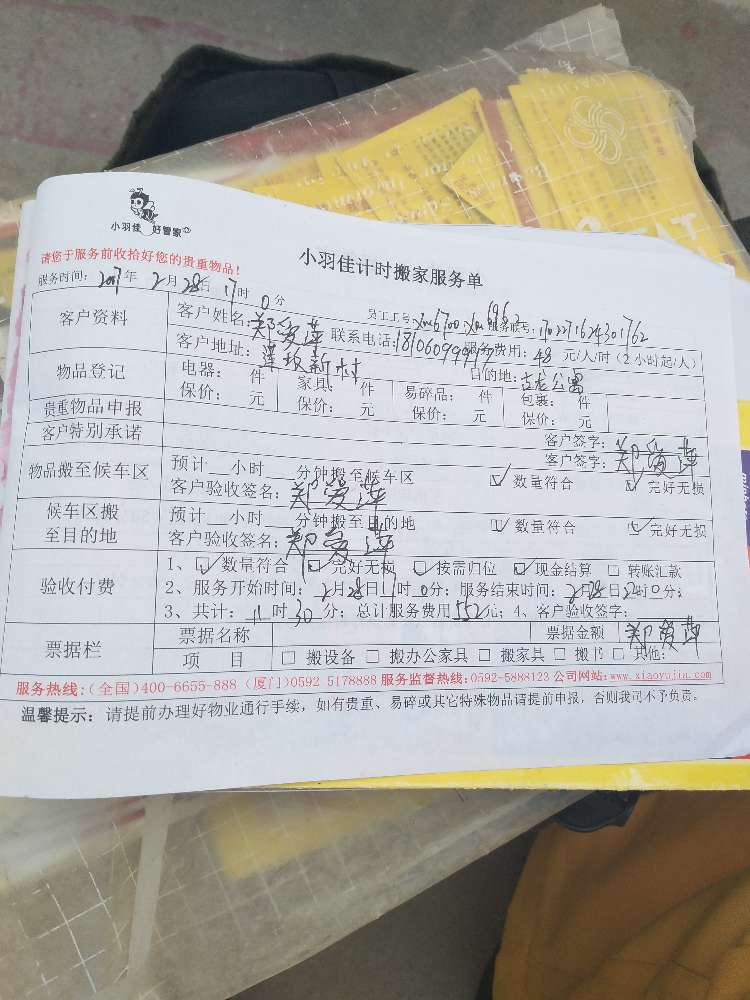 小羽佳 好管家
小羽佳计时搬家服务单
请您于服务前收拾好您的贵重物品!
服务时间: 2017年 2月28日 17时 0分
员工工号: 服务联号: 1702271624301762
客户资料 客户姓名: 郑爱萍 联系电话: 服务费用: 48 元/人/时(2小时起/人)
客户地址: 莲坂新村 目的地: 古龙公寓
物品登记 电器: 件 家具: 件 易碎品: 件 包裹: 件
保价: 元 保价: 元 保价: 元 保价: 元
贵重物品申报 客户签字: 郑爱萍
客户特别承诺 客户签字:
物品搬至候车区 预计__小时____分钟搬至候车区 ☑ 数量符合 ☑ 完好无损
客户验收签名: 郑爱萍
候车区搬至目的地 预计__小时____分钟搬至目的地 ☑ 数量符合 ☑ 完好无损
客户验收签名: 郑爱萍
验收付费 1、☑ 数量符合 ☑ 完好无损 ☑ 按需归位 ☑ 现金结算 □ 转账汇款
2、服务开始时间: 2月28日17时0分; 服务结束时间: 2月28日时0分;
3、共计: 11时30分; 总计服务费用552元; 4、客户验收签字: 郑爱萍
票据栏 票据名称 票据金额
项 目 □ 搬设备 □ 搬办公家具 □ 搬家具 □ 搬书 □ 其他:
服务热线:(全国)400-6655-888 (厦门)0592 5178888 服务监督热线:0592-5888123 公司网站:www.xiaoyujia.com
温馨提示: 请提前办理好物业通行手续, 如有贵重、易碎或其它特殊物品请提前申报, 否则我司不予负责。